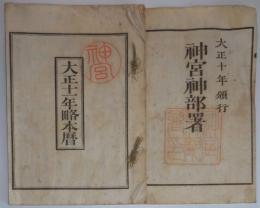 大正十年頒行
神宮神部署
神宮
大正十一年略本暦